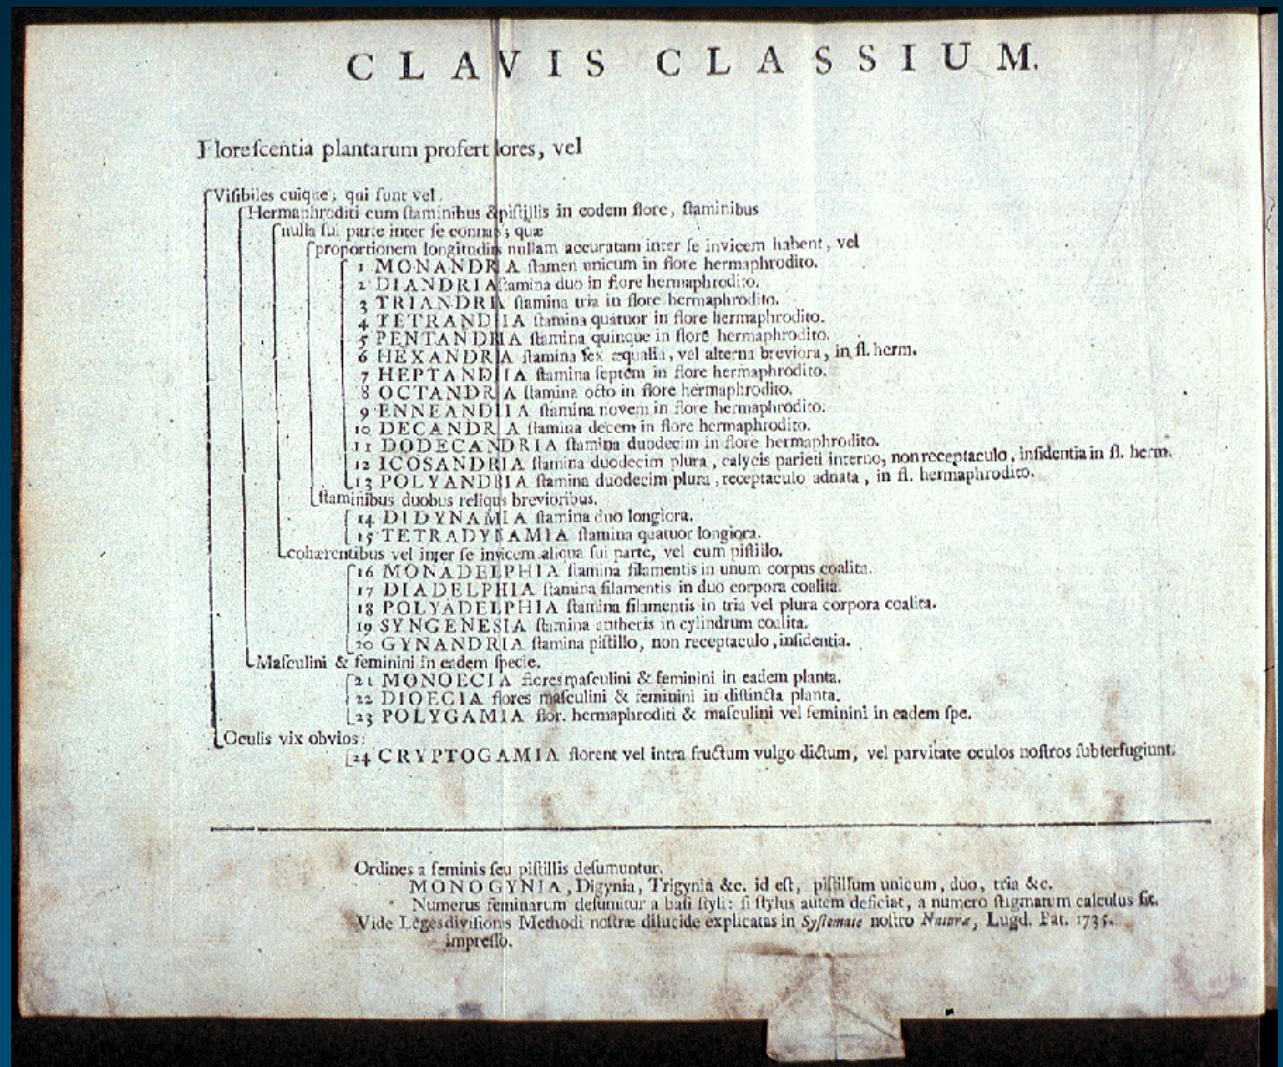 CLAVIS CLASSIUM.
Floreſcentia plantarum profert flores, vel
Viſibiles cuique; qui ſunt vel
Hermaphroditi cum ſtaminibus & piſtillis in eodem flore, ſtaminibus
nulla ſui parte inter ſe connatis; quæ
proportionem longitudinis nullam accuratam inter ſe invicem habent, vel
1 MONANDRIA ſtamen unicum in flore hermaphrodito.
2 DIANDRIA ſtamina duo in flore hermaphrodito.
3 TRIANDRIA ſtamina tria in flore hermaphrodito.
4 TETRANDRIA ſtamina quatuor in flore hermaphrodito.
5 PENTANDRIA ſtamina quinque in flore hermaphrodito.
6 HEXANDRIA ſtamina ſex æqualia, vel alterna breviora, in fl. herm.
7 HEPTANDRIA ſtamina ſeptem in flore hermaphrodito.
8 OCTANDRIA ſtamina octo in flore hermaphrodito.
9 ENNEANDRIA ſtamina novem in flore hermaphrodito.
10 DECANDRIA ſtamina decem in flore hermaphrodito.
11 DODECANDRIA ſtamina duodecim in flore hermaphrodito.
12 ICOSANDRIA ſtamina duodecim plura, calycis parieti interno, non receptaculo, inſidentia in fl. herm.
13 POLYANDRIA ſtamina duodecim plura, receptaculo adnata, in fl. hermaphrodito.
ſtaminibus duobus reliquis brevioribus.
14 DIDYNAMIA ſtamina duo longiora.
15 TETRADYNAMIA ſtamina quatuor longiora.
cohærentibus vel inter ſe invicem aliqua ſui parte, vel cum piſtillo.
16 MONADELPHIA ſtamina filamentis in unum corpus coalita.
17 DIADELPHIA ſtamina filamentis in duo corpora coalita.
18 POLYADELPHIA ſtamina filamentis in tria vel plura corpora coalita.
19 SYNGENESIA ſtamina antheris in cylindrum coalita.
20 GYNANDRIA ſtamina piſtillo, non receptaculo, inſidentia.
Maſculini & feminini in eadem ſpecie.
21 MONOECIA flores maſculini & feminini in eadem planta.
22 DIOECIA flores maſculini & feminini in diſtincta planta.
23 POLYGAMIA flor. hermaphroditi & maſculini vel feminini in eadem ſpe.
Oculis vix obvios:
24 CRYPTOGAMIA florent vel intra fructum vulgo dictum, vel parvitate oculos noſtros ſubterfugiunt.
Ordines a feminis ſeu piſtillis deſumuntur.
MONOGYNIA, Digynia, Trigynia &c. id eſt, piſtillum unicum, duo, tria &c.
Numerus feminarum deſumitur a baſi ſtyli: ſi ſtylus autem deficiat, a numero ſtigmatum calculus fit.
Vide Leges diviſionis Methodi noſtræ dilucide explicatas in Syſtemate noſtro Naturæ, Lugd. Bat. 1735.
impreſſo.